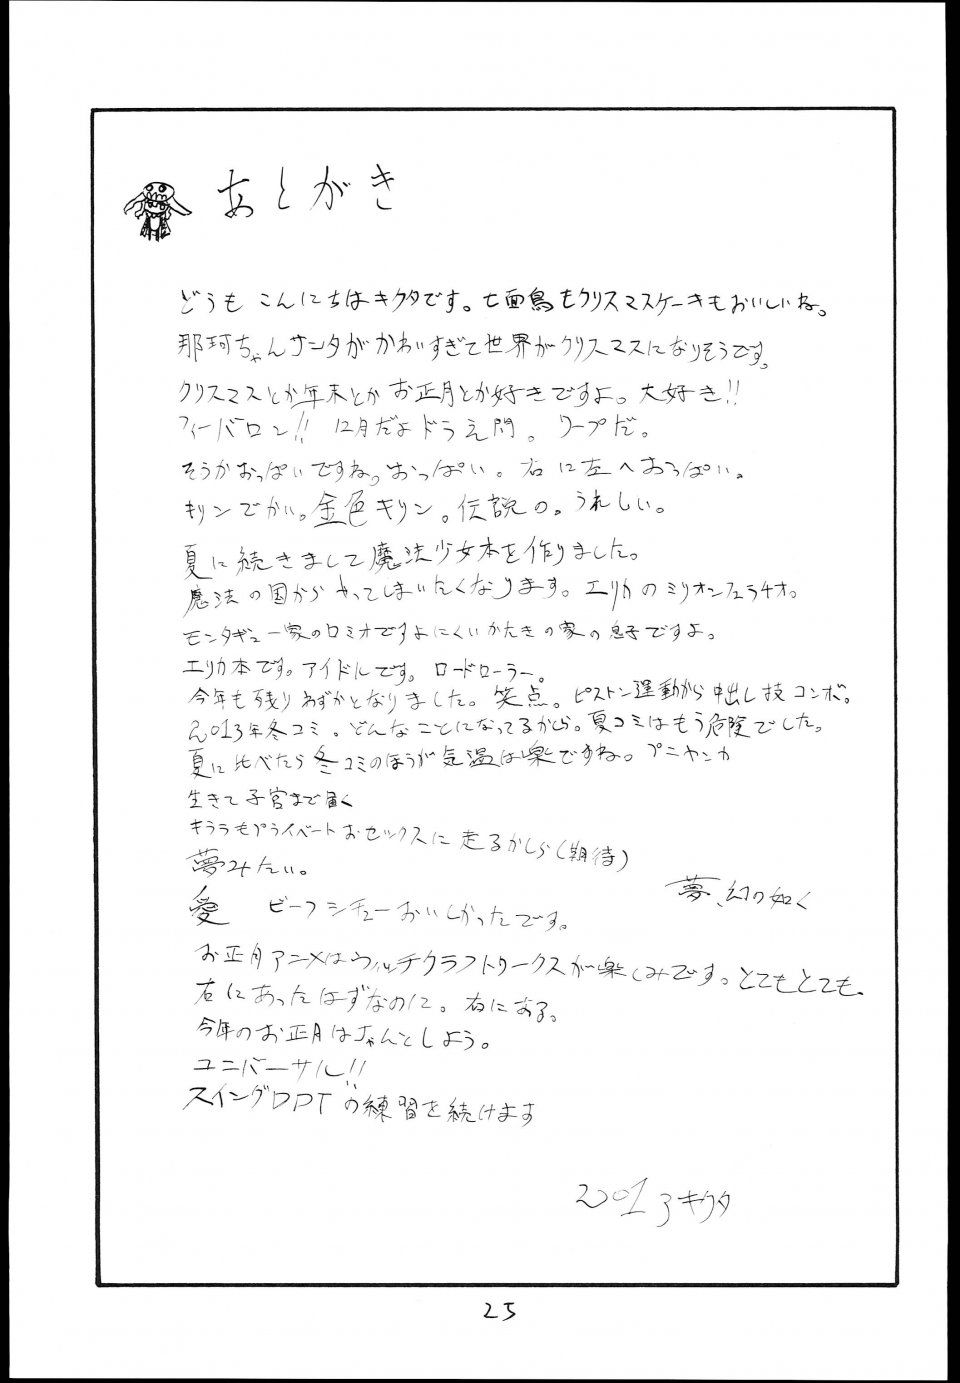 あとがき
どうも こんにちはキクタです。七面鳥もクリスマスケーキもおいしいね。
那珂ちゃんサンタがかわいすぎて世界がクリスマスになりそうです。
クリスマスとか年末とか お正月とか好きですよ。大好き!!
フィーバロン!! 12月だよドラえ門。ワープだ。
そうかおっぱいですね。おっぱい。右に左へおっぱい。
キリンでかい。金色キリン。伝説の。うれしい。
夏に続きまして魔法少女本を作りました。
魔法の国からやってしまいたくなります。エリカのミリオンフェラチオ。
モンタギュー家のロミオですよにくいかたきの家の息子ですよ。
エリカ本です。アイドルです。ロードローラー。
今年も残りわずかとなりました。笑点。ピストン運動から中出し技コンボ。
2013年冬コミ。どんなことになってるかしら。夏コミはもう危険でした。
夏に比べたら冬コミのほうが気温は楽ですね。プニャンカ
生きて子宮まで届く
キララもプライベートおセックスに走るかしら(期待)
夢みたい。
夢、幻の如く
愛 ビーフシチューおいしかったです。
お正月アニメはウィッチクラフトワークスが楽しみです。とてもとても、
右にあったはずなのに。右にある。
今年のお正月はちゃんとしよう。
ユニバーサル!!
スイングDDTの練習を続けます
2013キクタ
25